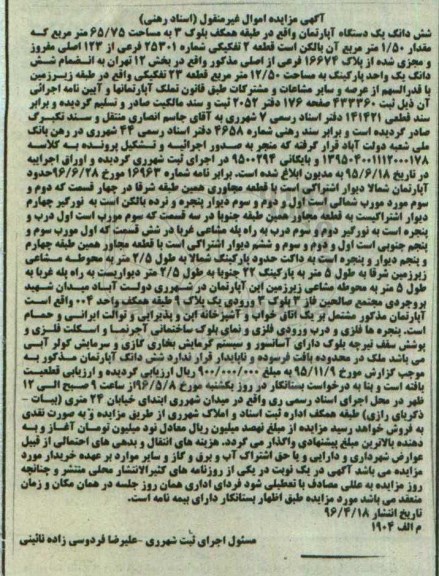 آگهی مزایده اموال غیرمنقول (اسناد رهنی)
شش دانگ یک دستگاه آپارتمان واقع در طبقه همکف بلوک ۳ به مساحت ۶۵/۷۵ متر مربع که
مقدار ۱/۵۰ متر مربع آن بالکن است قطعه ۲ تفکیکی شماره ۲۵۳۰۱ فرعی از ۱۲۳ اصلی مفروز
و مجزی شده از پلاک ۱۶۶۷۴ فرعی از اصلی مذکور واقع در بخش ۱۲ تهران به انضمام شش
دانگ یک واحد پارکینگ به مساحت ۱۲/۵۰ متر مربع قطعه ۲۳ تفکیکی واقع در طبقه زیرزمین
با قدرالسهم از عرصه و سایر مشاعات و مشترکات طبق قانون تملک آپارتمانها و آیین نامه اجرائی
آن ذیل ثبت ۴۳۳۳۶۰ صفحه ۱۷۶ دفتر ۲۰۵۲ ثبت و سند مالکیت صادر و تسلیم گردیده و برابر
سند قطعی ۱۴۱۴۲۱ دفتر اسناد رسمی ۷ شهرری به آقای جاسم انصاری منتقل و سند تکبرگ
صادر گردیده است و برابر سند رهنی شماره ۴۶۵۸ دفتر اسناد رسمی ۴۴ شهرری در رهن بانک
ملی شعبه دولت آباد قرار گرفته که منجر به صدور اجرائیه و تشکیل پرونده به کلاسه
۱۳۹۵۰۴۰۰۱۱۱۲۰۰۰۱۷۸ و بایگانی ۹۵۰۰۲۹۴ در اجرای ثبت شهرری گردیده و اوراق اجراییه
در تاریخ ۹۵/۶/۱۸ به مدیون ابلاغ شده است. برابر نامه شماره ۱۶۹۶۳ مورخ ۹۶/۶/۲۸ حدود
آپارتمان شمالا دیوار اشتراکی است با قطعه مجاوری همین طبقه شرقا در چهار قسمت که دوم و
سوم مورد مورب شمالی است اول و دوم و سوم دیوار پنجره و نرده بالکن است به نورگیر چهارم
دیوار اشتراکیست به قطعه مجاور همین طبقه جنوبا در سه قسمت که سوم مورب است اول درب و
پنجره است به نورگیر دوم و سوم درب به راه پله مشاعی غربا در شش قسمت که اول مورب سوم و
پنجم جنوبی است اول و دوم و سوم و ششم دیوار اشتراکی است با قطعه مجاور همین طبقه چهارم
و پنجم دیوار و پنجره است به داکت حدود پارکینگ شمالا به طول ۲/۵ متر به محوطه مشاعی
زیرزمین شرقا به طول ۵ متر به پارکینگ ۲۲ جنوبا به طول ۲/۵ متر دیواریست به راه پله غربا به
طول ۵ متر به محوطه مشاعی زیرزمین این آپارتمان در شهرری دولت آباد میدان شهید
بروجردی مجتمع صالحین فاز ۳ بلوک ۳ ورودی یک پلاک ۹ طبقه همکف واحد ۰۰۴ واقع است
آپارتمان مذکور مشتمل بر یک اتاق خواب و آشپزخانه اپن و پذیرایی و توالت ایرانی و حمام
است. پنجره ها فلزی و درب ورودی فلزی و نمای بلوک ساختمانی آجرنما و اسکلت فلزی و
پوشش سقف تیرچه بلوک دارای آسانسور و سیستم گرمایش بخاری گازی و سرمایش کولر آبی
می باشد ملک در محدوده بافت فرسوده و ناپایدار قرار ندارد شش دانگ آپارتمان مذکور به
موجب گزارش مورخ ۹۵/۱۱/۹ به مبلغ ۹۰۰/۰۰۰/۰۰۰ ریال ارزیابی گردیده و ارزیابی قطعیت
یافته است و بنا به درخواست بستانکار در روز یکشنبه مورخ ۹۶/۵/۸ از ساعت ۹ صبح الی ۱۲
ظهر در محل اجرای اسناد رسمی ری واقع در میدان شهرری ابتدای خیابان ۲۴ متری (بیات -
ذکریای رازی) طبقه همکف اداره ثبت اسناد و املاک شهرری از طریق مزایده و به صورت نقدی
به فروش خواهد رسید مزایده از مبلغ نهصد میلیون ریال معادل نود میلیون تومان آغاز و به
دهنده بالاترین مبلغ پیشنهادی واگذار می گردد. هزینه های انتقال و بدهی های احتمالی از قبیل
عوارض شهرداری و دارایی و یا حق اشتراک آب و برق و گاز و سایر موارد بر عهده خریدار مورد
مزایده می باشد آگهی در یک نوبت در یکی از روزنامه های کثیرالانتشار محلی منتشر و چنانچه
روز مزایده به عللی مصادف با تعطیلی شود فردای اداری همان روز جلسه در همان مکان و زمان
منعقد می باشد مورد مزایده طبق اظهار بستانکار دارای بیمه نامه است.
تاریخ انتشار ۹۶/۴/۱۸
م الف ۱۹۰۴
مسئول اجرای ثبت شهرری - علیرضا فردوسی زاده نائینی